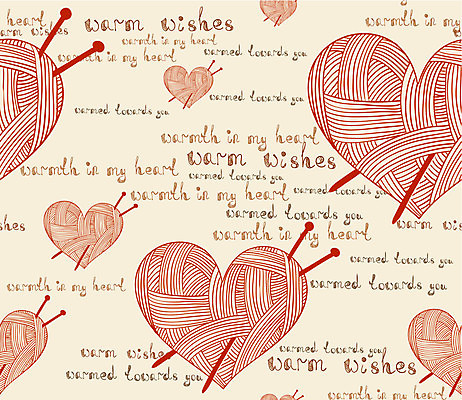 heart
warm wishes
warm wishes
warmth in my heart
warmth in my heart
warmed towards you
warmed towards you
warmed towards you
warmth in my heart
warm wishes
warmth in my heart
warmed towards you
warmth in my heart
warmed towards you
warmed towards you
wishes
warm wishes
warmth in my heart
warmed towards you
warmth in my heart
warmed towards you
warmed towards you
warm wishes
warmed towards you
warm wishes
warmed towards you
warmth in my heart